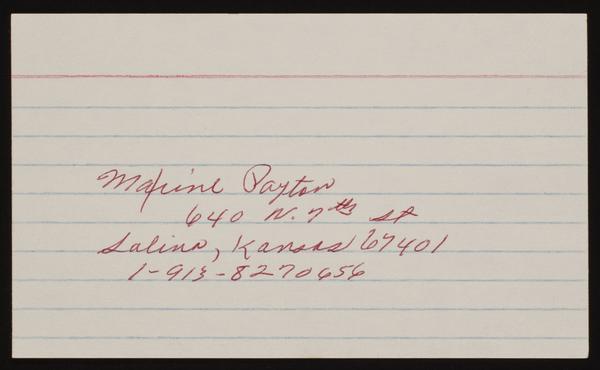 Maxine Payton
640 N. 7th St
Salina, Kansas 67401
1-913-8270656